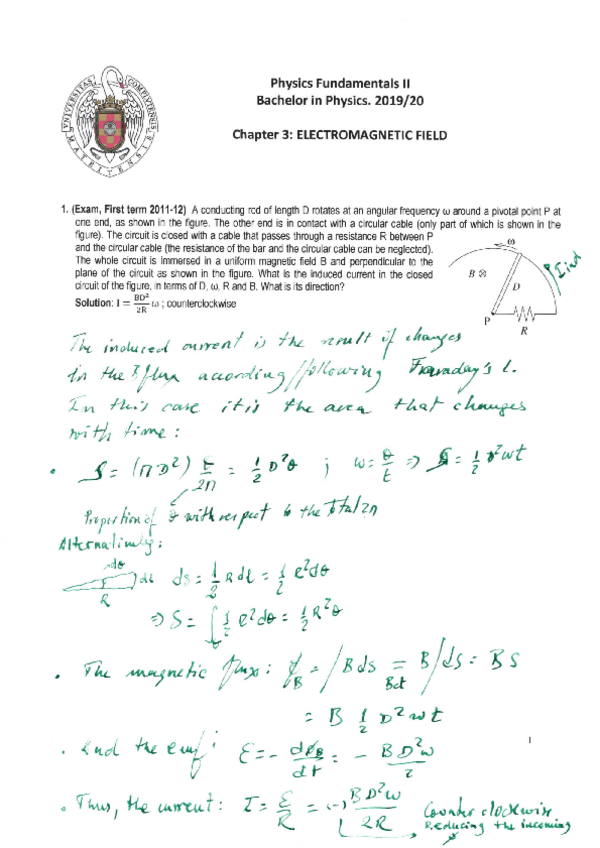 Physics Fundamentals II
Bachelor in Physics. 2019/20
Chapter 3: ELECTROMAGNETIC FIELD
1. (Exam, First term 2011-12) A conducting rod of length D rotates at an angular frequency ω around a pivotal point P at
one end, as shown in the figure. The other end is in contact with a circular cable (only part of which is shown in the
figure). The circuit is closed with a cable that passes through a resistance R between P
and the circular cable (the resistance of the bar and the circular cable can be neglected).
The whole circuit is immersed in a uniform magnetic field B and perpendicular to the
plane of the circuit as shown in the figure. What is the induced current in the closed
circuit of the figure, in terms of D, ω, R and B. What is its direction?
Solution: I = BD²/2R ω ; counterclockwise
ω
B ⊗
D
P
R
I ind
The induced current is the result of changes
in the B flux according/following Faraday's l.
In this case it is the area that changes
with time:
S = (πD²) θ/2π = 1/2 D²θ ; ω = θ/t ⇒ S = 1/2 D²ωt
Proportion of θ with respect to the total 2π
Alternatively:
dθ
dl
R
ds = 1/2 R dl = 1/2 R²dθ
⇒ S = ∫ 1/2 R²dθ = 1/2 R²θ
. The magnetic flux: ϕB = ∫B ds = B∫ds = BS
Bct
= B 1/2 D²ωt
. And the emf: Ɛ = - dϕB/dt = - BD²ω/2
. Thus, the current: I = Ɛ/R = (-) BD²ω/2R
Counter clockwise
Reducing the incoming
1